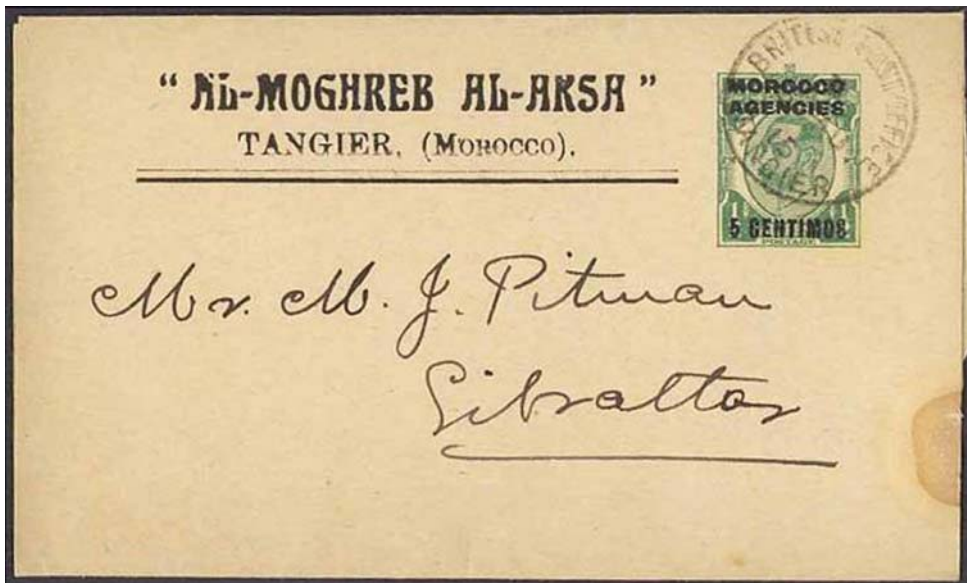 " AL-MOGHREB AL-AKSA "
TANGIER, (MOROCCO).
BRITISH POST OFFICE
TANGIER
MOROCCO
AGENCIES
5 CENTIMOS
POSTAGE
Mr. M. J. Pitman
Gibraltar